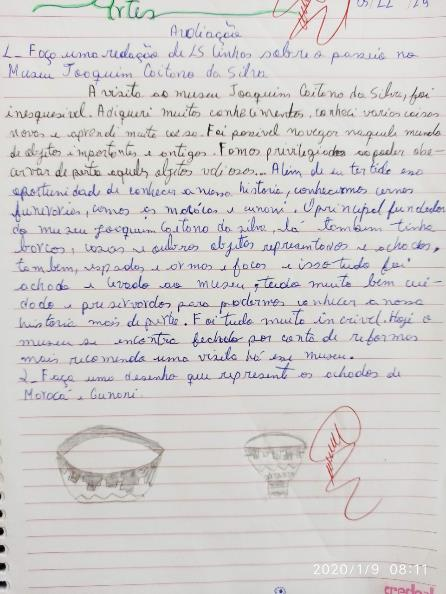 Artes
05/11/19
Avaliação
1- Faço uma redação de 15 linhas sobre o passeio no
Museu Joaquim Caitano da Silva.
A visita ao museu Joaquim Caitano da Silva, foi
inesquesivel. Adiqueri muitos conhecimentos, conheci varias coisas
novas e aprendi muita coisa. Foi possivel navegar naquele mundo
de objetos importantes e antigos. Fomos privilegiados ao poder obse-
rvar de perto aqueles objetos valiosos... Alem de eu ter tido essa
oportunidade de conhecer a nossa historia, conhecemos urnas
funerarias, como as maracás e cunani. O principal fundador
do museu Joaquim Caitano da silva, lá tambem tinha
barcos, casas e outros objetos representavos e achados,
tambem, espadas e armas e facas e isso tudo foi
achado e levado ao museu, tendo muito bem cui-
dado e preservardos para podermos conhecer a nossa
historia mais de perto. Foi tudo muito incrivel. Hoje o
museu se encontra fechado por conta de reformas
mais recomendo uma visita há esse museu.
2- Faça uma desenho que represent os achados de
Maracá e Cunani.
2020/1/9 08:11
credeal